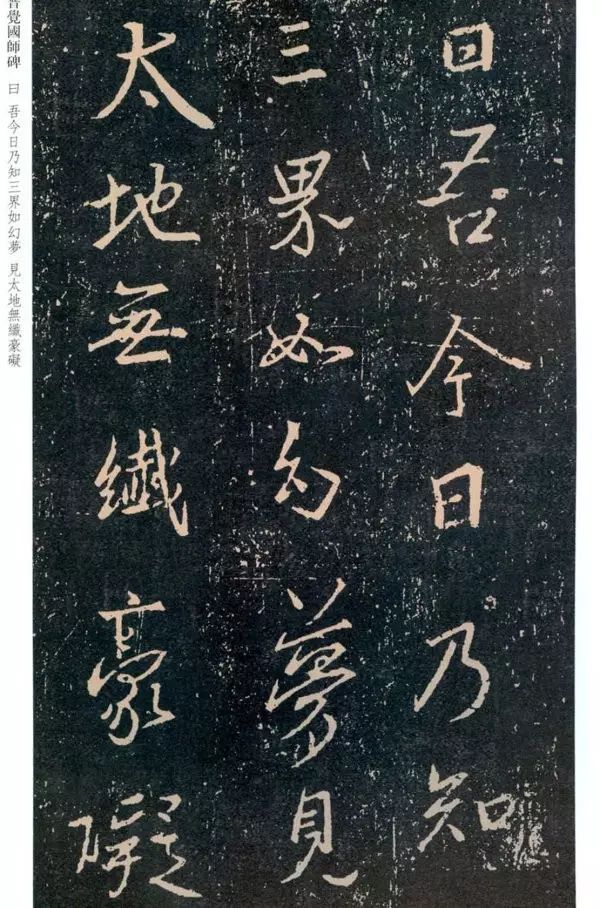 曰吾今日乃知
三界如幻夢見
太地無纖豪礙
普覺國師碑 曰 吾今日乃知三界如幻夢 見太地無纖豪礙